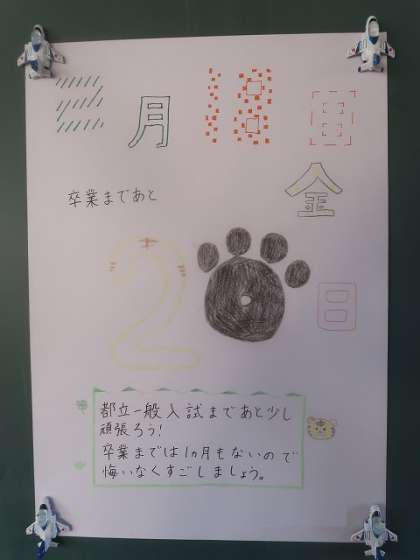 2月18日
金
卒業まであと
20日
都立一般入試まであと少し
頑張ろう!
卒業までは1ヵ月もないので
悔いなくすごしましょう。